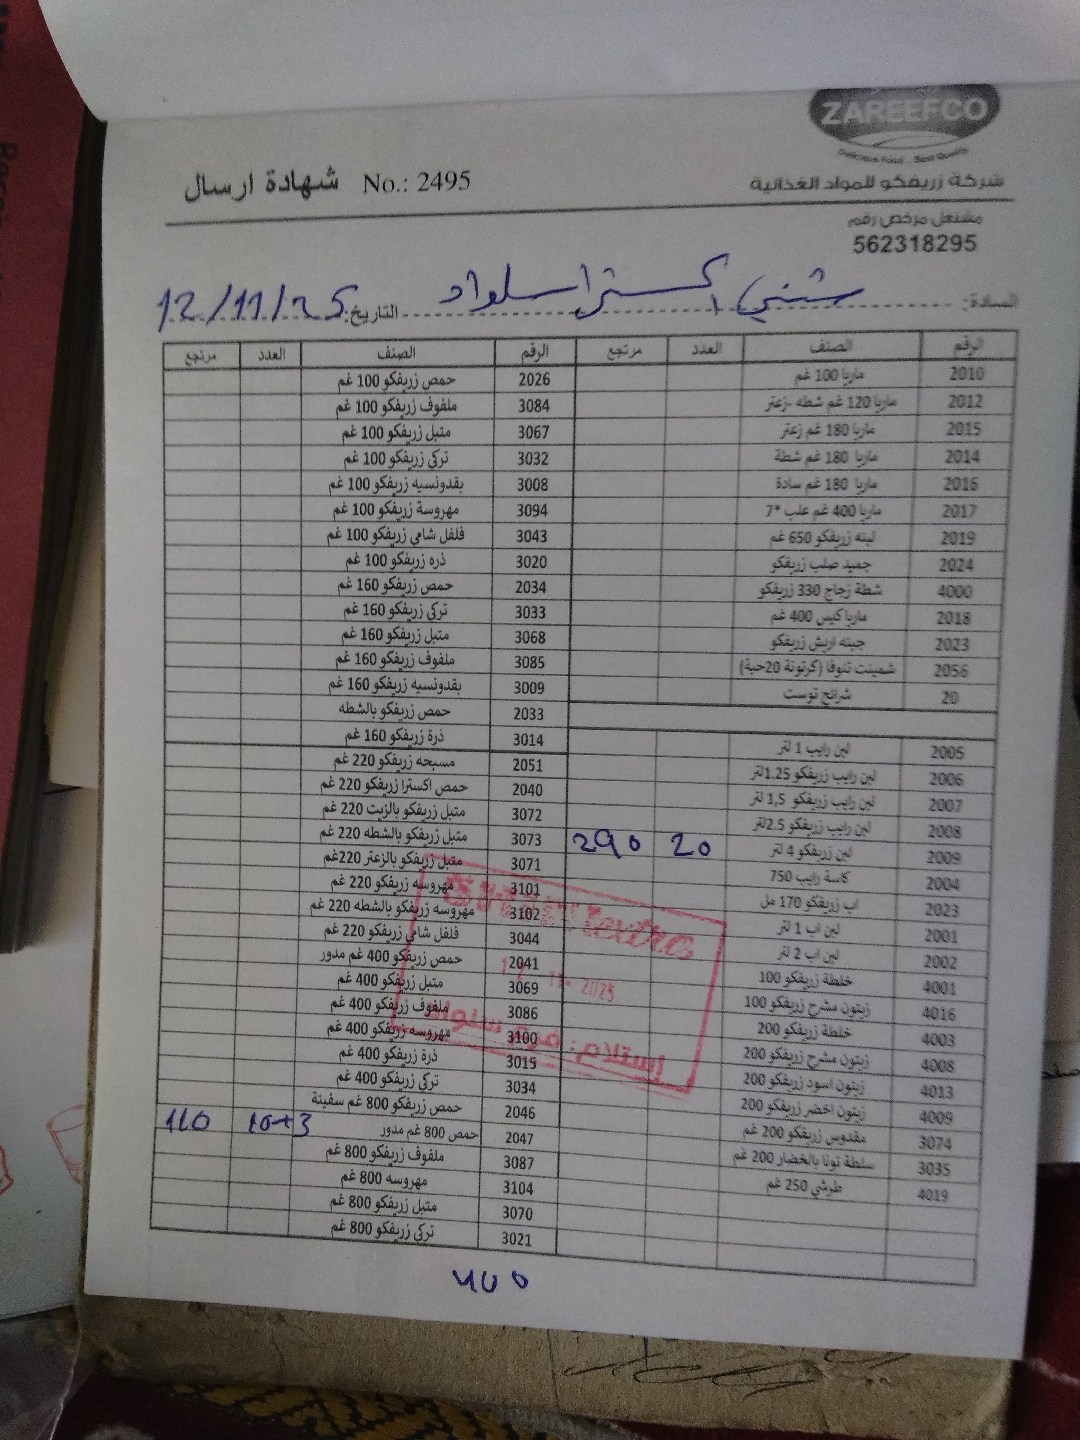 ZAREEFCO
Delicious Food .. Best Quality
شركة زريفكو للمواد الغذائية
شهادة ارسال No.: 2495
مشتغل مرخص رقم
562318295
السادة: شني اكسترا سلواد التاريخ: 12/11/25
الرقم الصنف العدد مرتجع الرقم الصنف العدد مرتجع
2010 ماريا 100 غم 2026 حمص زريفكو 100 غم
2012 ماريا 120 غم شطه -زعتر 3084 ملفوف زريفكو 100 غم
2015 ماريا 180 غم زعتر 3067 متبل زريفكو 100 غم
2014 ماريا 180 غم شطة 3032 تركي زريفكو 100 غم
2016 ماريا 180 غم سادة 3008 بقدونسيه زريفكو 100 غم
2017 ماريا 400 غم علب *7 3094 مهروسة زريفكو 100 غم
2019 لبنه زريفكو 650 غم 3043 فلفل شامي زريفكو 100 غم
2024 جميد صلب زريفكو 3020 ذره زريفكو 100 غم
4000 شطة زجاج 330 زريفكو 2034 حمص زريفكو 160 غم
2018 ماريا كيس 400 غم 3033 تركي زريفكو 160 غم
2023 جبنه اريش زريفكو 3068 متبل زريفكو 160 غم
2056 شمينت تنوفا (كرتونة 20حبة) 3085 ملفوف زريفكو 160 غم
20 شرائح توست 3009 بقدونسيه زريفكو 160 غم
2033 حمص زريفكو بالشطه
3014 ذرة زريفكو 160 غم
2005 لبن رايب 1 لتر 2051 مسبحه زريفكو 220 غم
2006 لبن رايب زريفكو 1.25لتر 2040 حمص اكسترا زريفكو 220 غم
2007 لبن رايب زريفكو 1,5 لتر 3072 متبل زريفكو بالزيت 220 غم
2008 لبن رايب زريفكو 2.5لتر 3073 متبل زريفكو بالشطه 220 غم
2009 لبن زريفكو 4 لتر 20 290 3071 متبل زريفكو بالزعتر 220غم
2004 كاسة رايب 750 3101 مهروسه زريفكو 220 غم
2023 اب زريفكو 170 مل 3102 مهروسه زريفكو بالشطه 220 غم
2001 لبن اب 1 لتر 3044 فلفل شامي زريفكو 220 غم
2002 لبن اب 2 لتر 2041 حمص زريفكو 400 غم مدور
4001 خلطة زريفكو 100 3069 متبل زريفكو 400 غم
4016 زيتون مشرح زريفكو 100 3086 ملفوف زريفكو 400 غم
4003 خلطة زريفكو 200 3100 مهروسه زريفكو 400 غم
4008 زيتون مشرح زريفكو 200 3015 ذرة زريفكو 400 غم
4013 زيتون اسود زريفكو 200 3034 تركي زريفكو 400 غم
4009 زيتون اخضر زريفكو 200 2046 حمص زريفكو 800 غم سفينة
3074 مقدوس زريفكو 200 غم 2047 حمص 800 غم مدور 10+3 110
3035 سلطة تونا بالخضار 200 غم 3087 ملفوف زريفكو 800 غم
4019 طرشي 250 غم 3104 مهروسه 800 غم
3070 متبل زريفكو 800 غم
3021 تركي زريفكو 800 غم
extra
11- 2025
إستلام: فرع سلواد
400